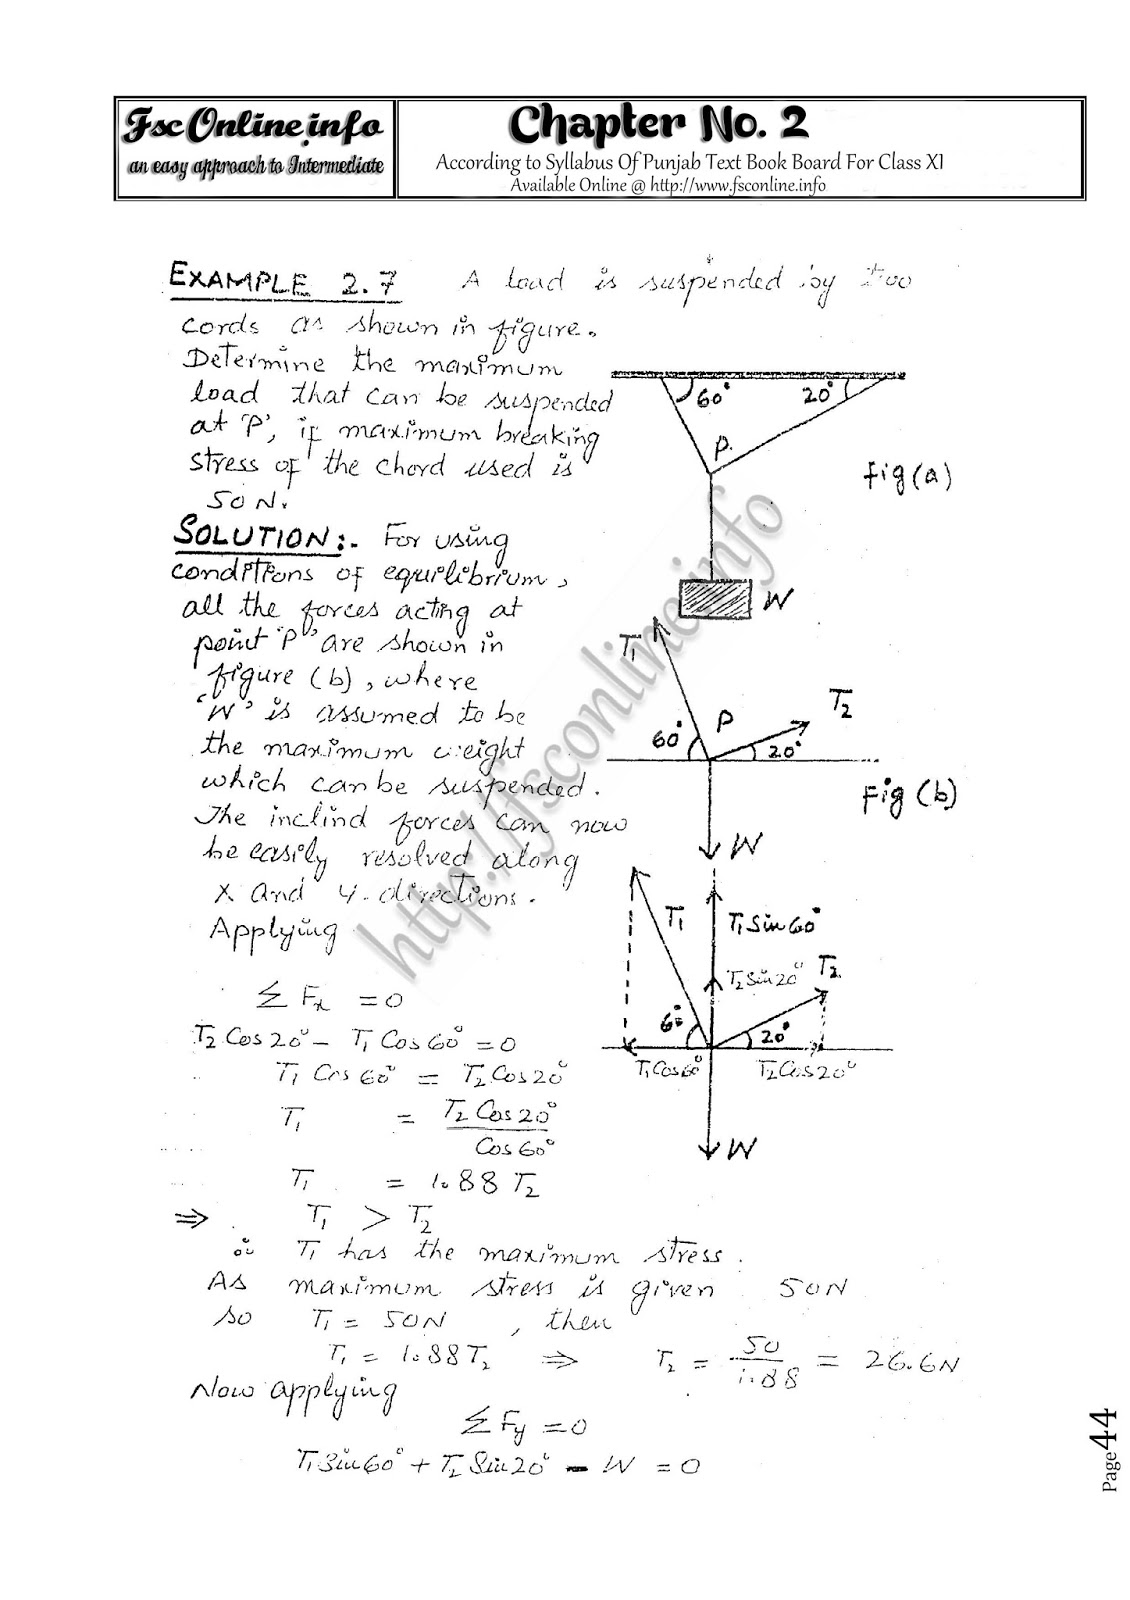 Fsc Online.info
an easy approach to Intermediate
Chapter No. 2
According to Syllabus Of Punjab Text Book Board For Class XI
Available Online @ http://www.fsconline.info
EXAMPLE 2.7 A load is suspended by two
cords as shown in figure.
Determine the maximum
load that can be suspended
at 'P', if maximum breaking
stress of the chord used is
50 N.
60° 20°
P.
Fig (a)
W
SOLUTION:- For using
conditions of equilibrium,
all the forces acting at
point 'P' are shown in
figure (b), where
'W' is assumed to be
the maximum weight
which can be suspended.
The inclind forces can now
be easily resolved along
x and y-directions.
Applying
T₁
T₂
P
60° 20°
Fig (b)
W
T₁ T₁ Sin 60°
T₂ Sin 20° T₂
60° 20°
T₁ Cos 60° T₂ Cos 20°
W
Σ Fx = 0
T₂ Cos 20° - T₁ Cos 60° = 0
T₁ Cos 60° = T₂ Cos 20°
T₁ = T₂ Cos 20° / Cos 60°
T₁ = 1.88 T₂
⇒ T₁ > T₂
∴ T₁ has the maximum stress.
As maximum stress is given 50N
so T₁ = 50N, then
T₁ = 1.88 T₂ ⇒ T₂ = 50 / 1.88 = 26.6N
Now applying
Σ Fy = 0
T₁ Sin 60° + T₂ Sin 20° - W = 0
http://fsconline.info
Page 44